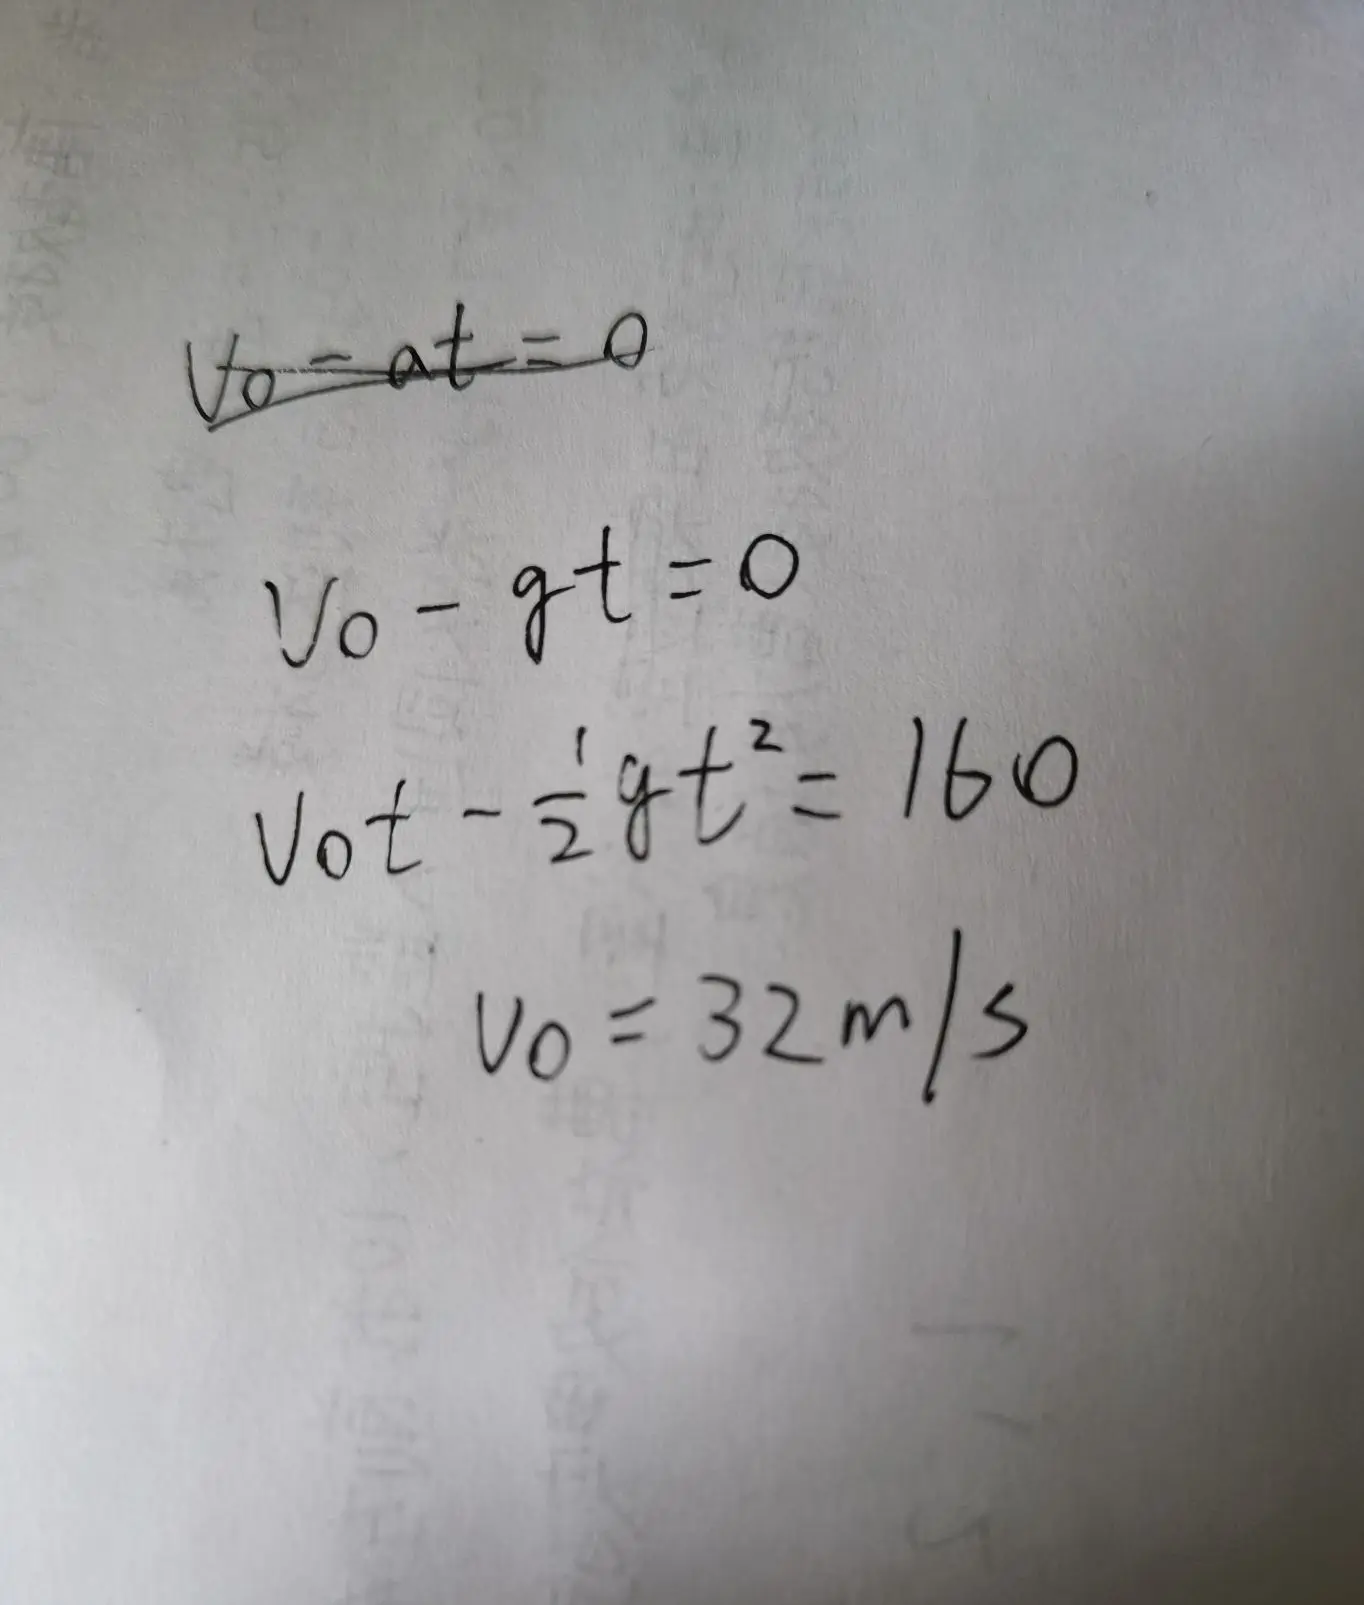 V₀ - at = 0
V₀ - gt = 0
V₀t - ½gt² = 160
V₀ = 32m/s